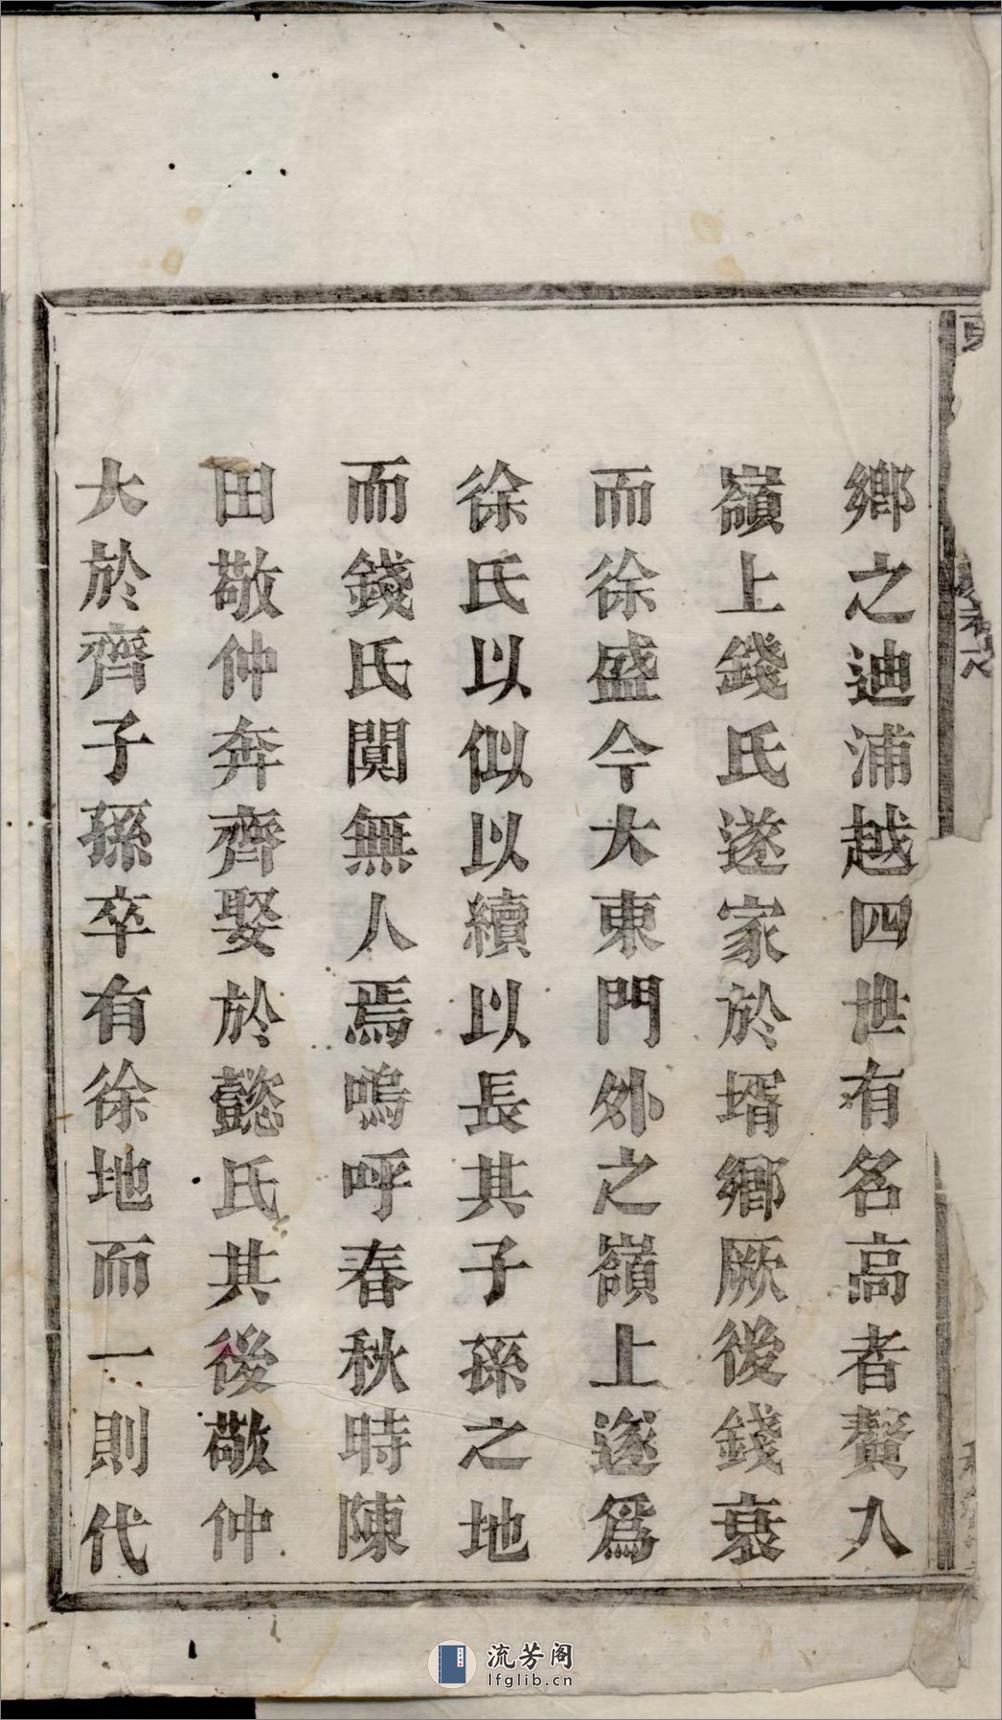 鄉之迪浦越四世有名高者贅入
嶺上錢氏遂家於壻鄉厥後錢衰
而徐盛今大東門外之嶺上遂爲
徐氏以似以續以長其子孫之地
而錢氏闃無人焉嗚呼春秋時陳
田敬仲奔齊娶於懿氏其後敬仲
大於齊子孫卒有徐地而一則代
流芳阁
lfglib.cn